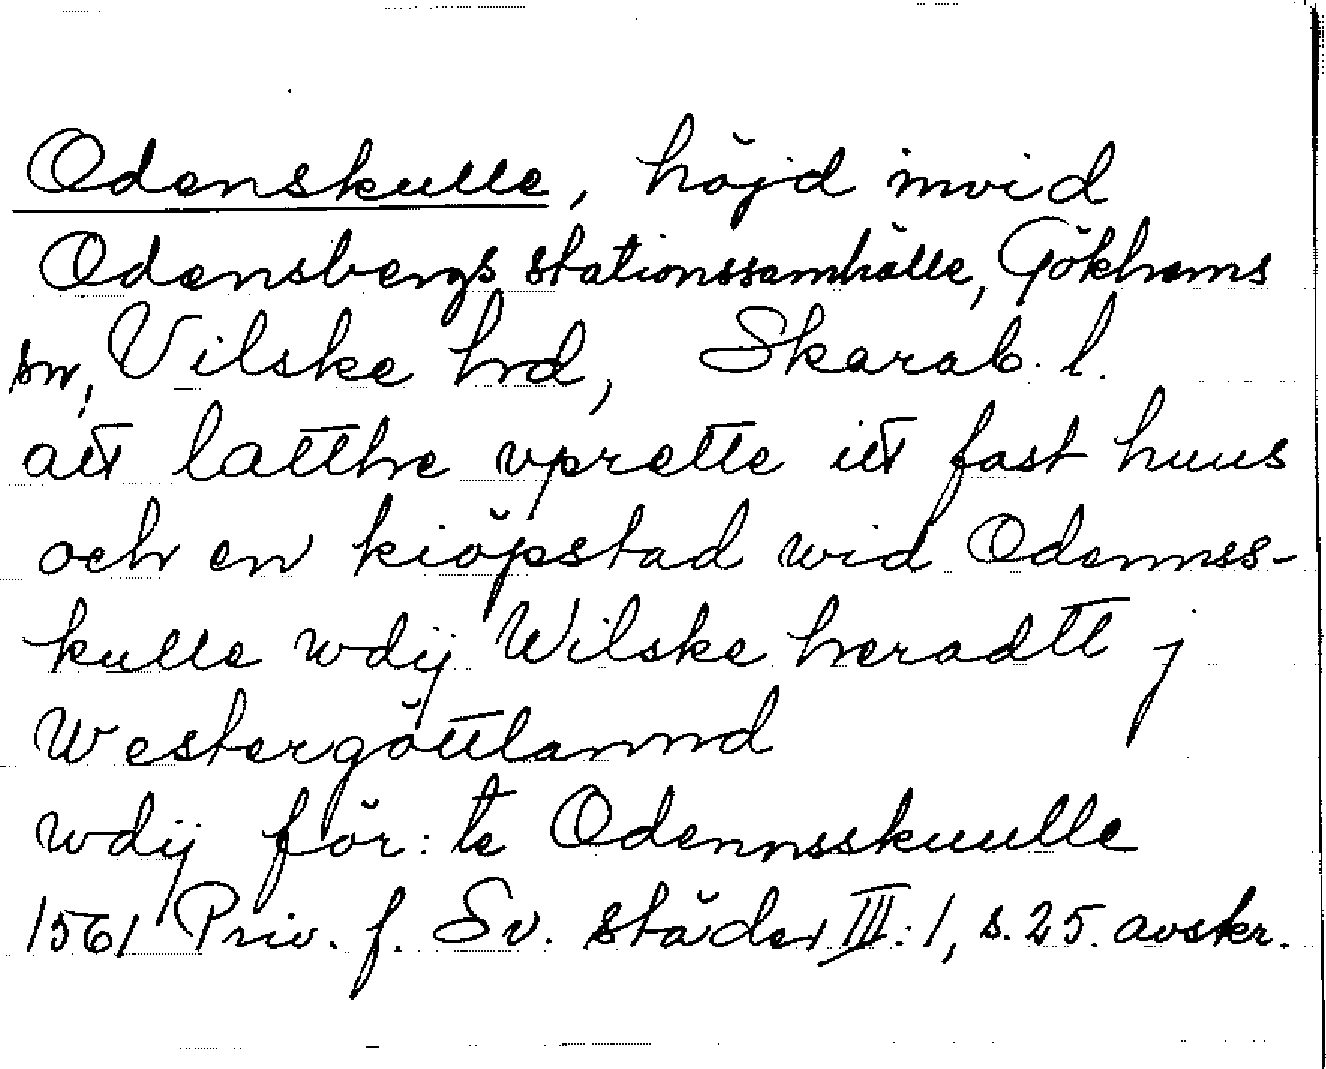 Odenskulle, höjd invid
Odensbergs stationssamhälle, Gökhems
sn, Vilske hrd, Skarab. l.
att latthe vprette itt fast huus
och en kiöpstad wid Odennss-
kulle wdij Wilske heradtt j
Westergöttlannd
wdij för: te Odennsskuulle
1561 Priv. f. Sv. städer III:1, s. 25. avskr.